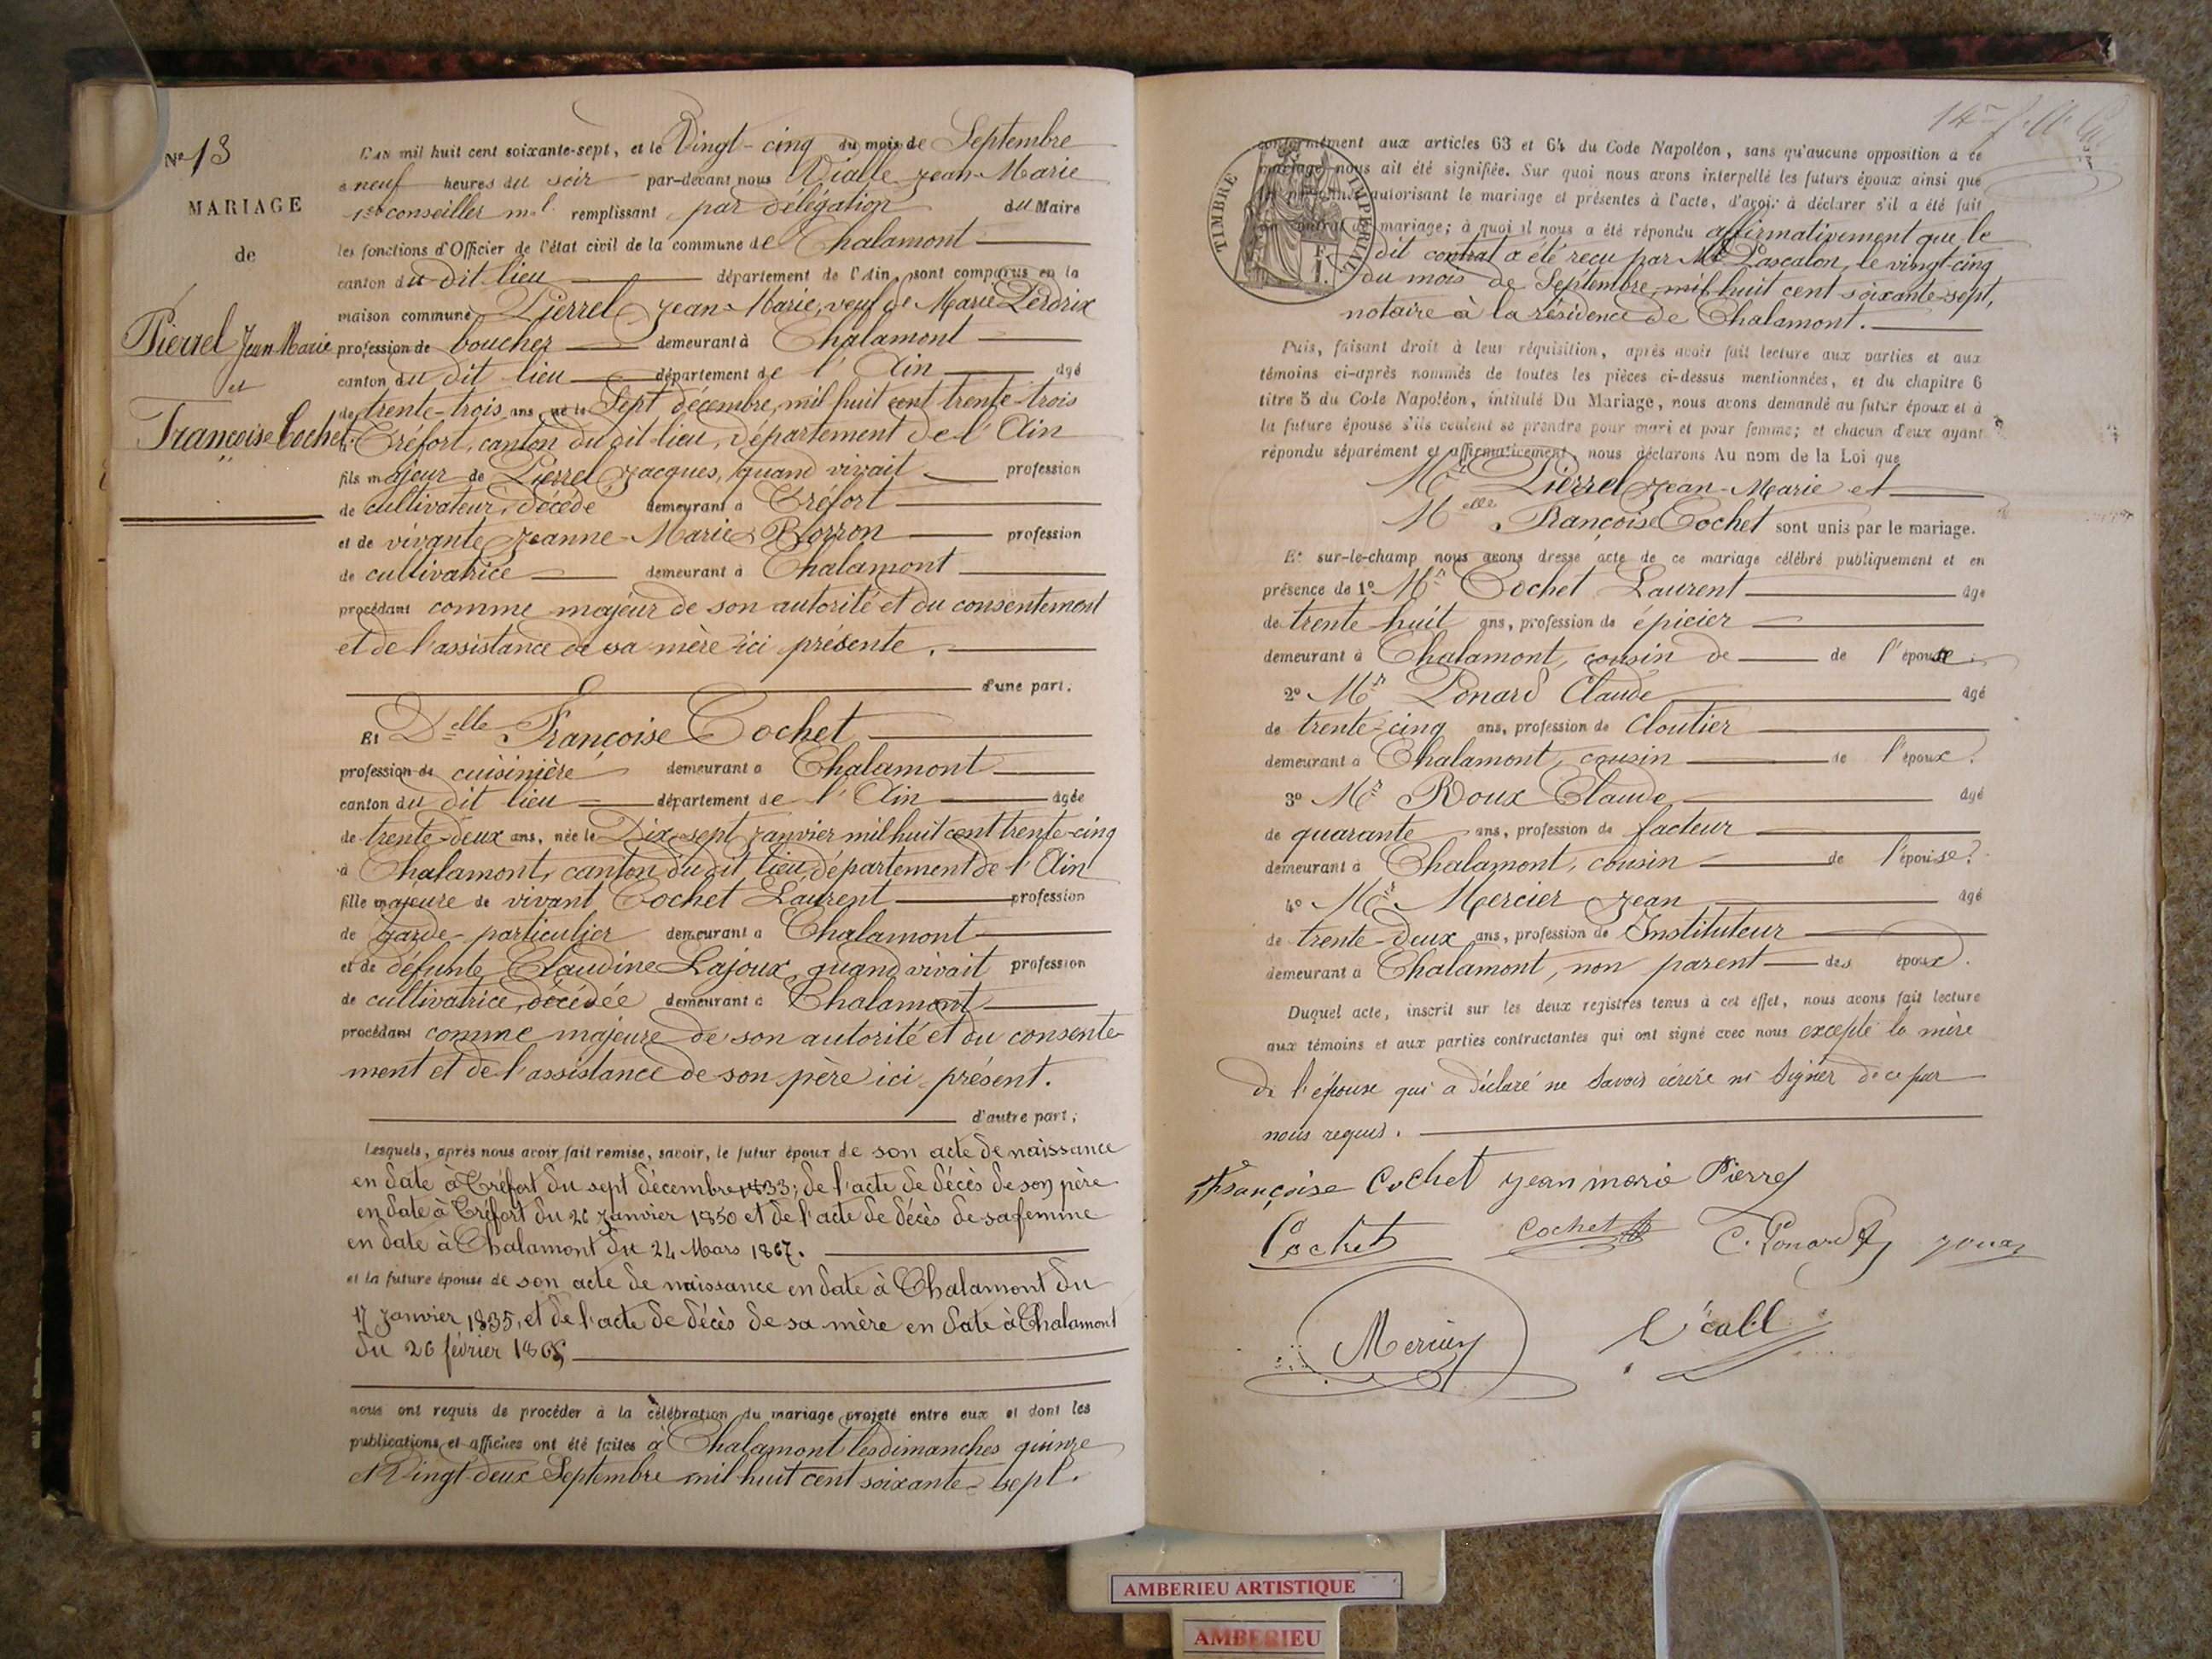 N° 13
MARIAGE
de
Pierrel Jean Marie
et
Françoise Cochet.
L'an mil huit cent soixante-sept, et le Vingt-cinq du mois de Septembre
à neuf heures du soir par-devant nous Vialle Jean-Marie
1er conseiller mal remplissant par délégation du Maire
les fonctions d'Officier de l'état civil de la commune de Chalamont
canton du dit lieu département de l'Ain, sont comparus en la
maison commune, Pierrel Jean-Marie, veuf de Marie Perdrix
profession de boucher demeurant à Chalamont
canton du dit lieu département de l'Ain âgé
de trente-trois ans, né le Sept décembre, mil huit cent trente-trois
à Tréfort, canton du dit lieu, département de l'Ain
fils majeur de Pierrel Jacques, quand vivait profession
de cultivateur, décédé demeurant à Tréfort
et de vivante Jeanne-Marie Borron profession
de cultivatrice demeurant à Chalamont
procédant comme majeur de son autorité et du consentement
et de l'assistance de sa mère ici présente.
d'une part;
Et Delle Françoise Cochet
profession de cuisinière demeurant à Chalamont
canton du dit lieu département de l'Ain âgée
de trente-deux ans, née le Dix-sept Janvier mil huit cent trente-cinq
à Chalamont, canton du dit lieu, département de l'Ain
fille majeure de vivant Cochet Laurent profession
de garde-particulier demeurant à Chalamont
et de défunte Claudine Lajoux, quand vivait profession
de cultivatrice, décédée demeurant à Chalamont
procédant comme majeure de son autorité et du consente-
ment et de l'assistance de son père ici présent.
d'autre part;
Lesquels, après nous avoir fait remise, savoir, le futur époux de son acte de naissance
en date à Tréfort du sept décembre 1833; de l'acte de décès de son père
en date à Tréfort du 26 Janvier 1850 et de l'acte de décès de sa femme
en date à Chalamont du 24 Mars 1867.
et la future épouse de son acte de naissance en date à Chalamont du
17 Janvier 1835, et de l'acte de décès de sa mère en date à Chalamont
du 26 février 1865
nous ont requis de procéder à la célébration du mariage projeté entre eux et dont les
publications et affiches ont été faites à Chalamont les dimanches quinze
et Vingt-deux Septembre mil huit cent soixante-sept.
TIMBRE IMPERIAL
conformément aux articles 63 et 64 du Code Napoléon, sans qu'aucune opposition à ce
mariage nous ait été signifiée. Sur quoi nous avons interpellé les futurs époux ainsi que
autorisant le mariage et présentes à l'acte, d'avoir à déclarer s'il a été fait
mariage; à quoi il nous a été répondu affirmativement que le
dit contrat a été reçu par Me Pascalon, le vingt-cinq
du mois de Septembre, mil huit cent soixante-sept,
notaire à la résidence de Chalamont.
Puis, faisant droit à leur réquisition, après avoir fait lecture aux parties et aux
témoins ci-après nommés de toutes les pièces ci-dessus mentionnées, et du chapitre 6
titre 5 du Code Napoléon, intitulé Du Mariage, nous avons demandé au futur époux et à
la future épouse s'ils veulent se prendre pour mari et pour femme; et chacun d'eux ayant
répondu séparément et affirmativement, nous déclarons Au nom de la Loi que
Mr Pierrel Jean-Marie et
Melle Françoise Cochet sont unis par le mariage.
Et sur-le-champ nous avons dressé acte de ce mariage célébré publiquement et en
présence de 1° Mr Cochet Laurent âgé
de trente-huit ans, profession de épicier
demeurant à Chalamont, cousin de de l'épouse.
2° Mr Ponard Claude âgé
de trente-cinq ans, profession de Cloutier
demeurant à Chalamont, cousin de l'époux.
3° Mr Roux Claude âgé
de quarante ans, profession de facteur
demeurant à Chalamont, cousin de l'épouse.
4° Mr Mercier Jean âgé
de trente-deux ans, profession de Instituteur
demeurant à Chalamont, non parent des époux.
Duquel acte, inscrit sur les deux registres tenus à cet effet, nous avons fait lecture
aux témoins et aux parties contractantes qui ont signé avec nous excepté la mère
de l'épouse qui a déclaré ne savoir écrire ni signer de ce par
nous requis.
Françoise Cochet jean marie Pierrel
Cochet Cochet C. Ponard
Mercier
AMBERIEU ARTISTIQUE
AMBERIEU